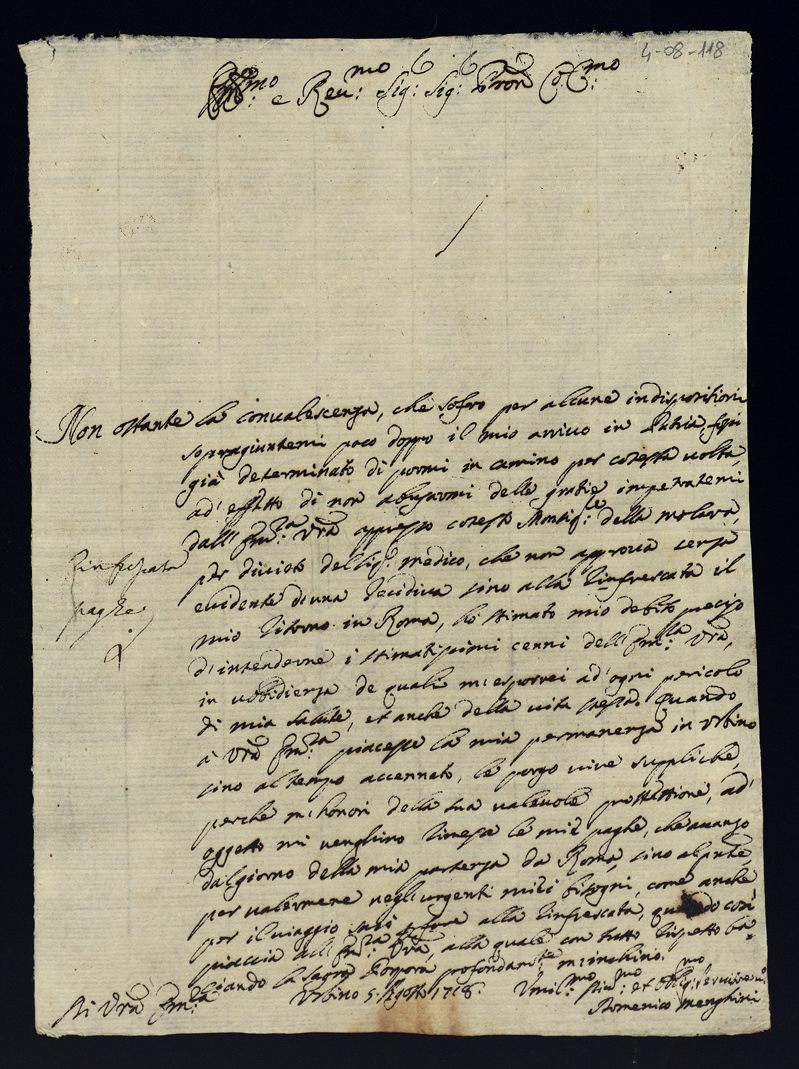 4-08-118
Em:mo e Reu:mo Sig: Sig: Pron Co:mo
Non ostante la conualescenza, che sofro per alcune indispositioni
sopragiuntemi poco doppo il mio arriuo in Patria,
già determinato di pormi in camino per cotesta uolta,
ad' effetto di non abusarmi delle gratie impetratemi
dall' Em:za Vra appresso cotesto Monsig:re della Molara,
per diuieto del Sig: medico, che non approua senza
euidente d'una recidiua sino alla rinfrescata il
mio ritorno in Roma, hò stimato mio debito preciso
d'intenderne i stimatissimi cenni dell' Em:za Vra,
in ubbidienza de quali m'esporrei ad' ogni pericolo
di mia salute, et anche della uita stessa. Quando
à Vra Em:za piacesse la mia permanenza in Urbino
sino al tempo accennato, le porgo uiue suppliche,
perche m'honori della sua ualeuole protettione, ad'
effetto mi uenghino rimesse le mie paghe, che auanzo
dal giorno della mia partenza da Roma, sino al pnte,
per ualermene negl'urgenti miei bisogni, come anche
per il uiaggio alla rinfrescata, quando così
piaccia all' Em:za Vra, alla quale con tutto rispetto ba=
ciando la sagra Porpora profondam:te m'inchino.
Urbino 5 Agosto 1718.
Di Vra Em:za
Umil:mo Diu:mo et Obl:mo seruitore
Domenico Menghini
paghe